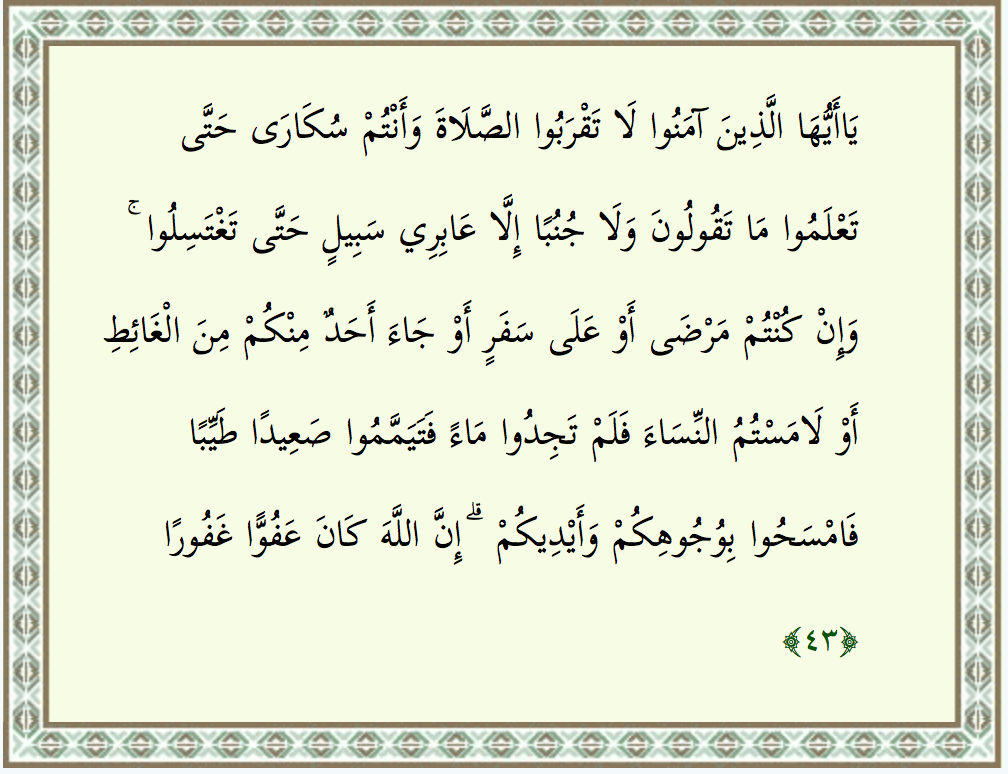 يَاأَيُّهَا الَّذِينَ آمَنُوا لَا تَقْرَبُوا الصَّلَاةَ وَأَنْتُمْ سُكَارَى حَتَّى
تَعْلَمُوا مَا تَقُولُونَ وَلَا جُنُبًا إِلَّا عَابِرِي سَبِيلٍ حَتَّى تَغْتَسِلُوا ۚ
وَإِنْ كُنْتُمْ مَرْضَى أَوْ عَلَى سَفَرٍ أَوْ جَاءَ أَحَدٌ مِنْكُمْ مِنَ الْغَائِطِ
أَوْ لَامَسْتُمُ النِّسَاءَ فَلَمْ تَجِدُوا مَاءً فَتَيَمَّمُوا صَعِيدًا طَيِّبًا
فَامْسَحُوا بِوُجُوهِكُمْ وَأَيْدِيكُمْ ۗ إِنَّ اللَّهَ كَانَ عَفُوًّا غَفُورًا
﴿٤٣﴾